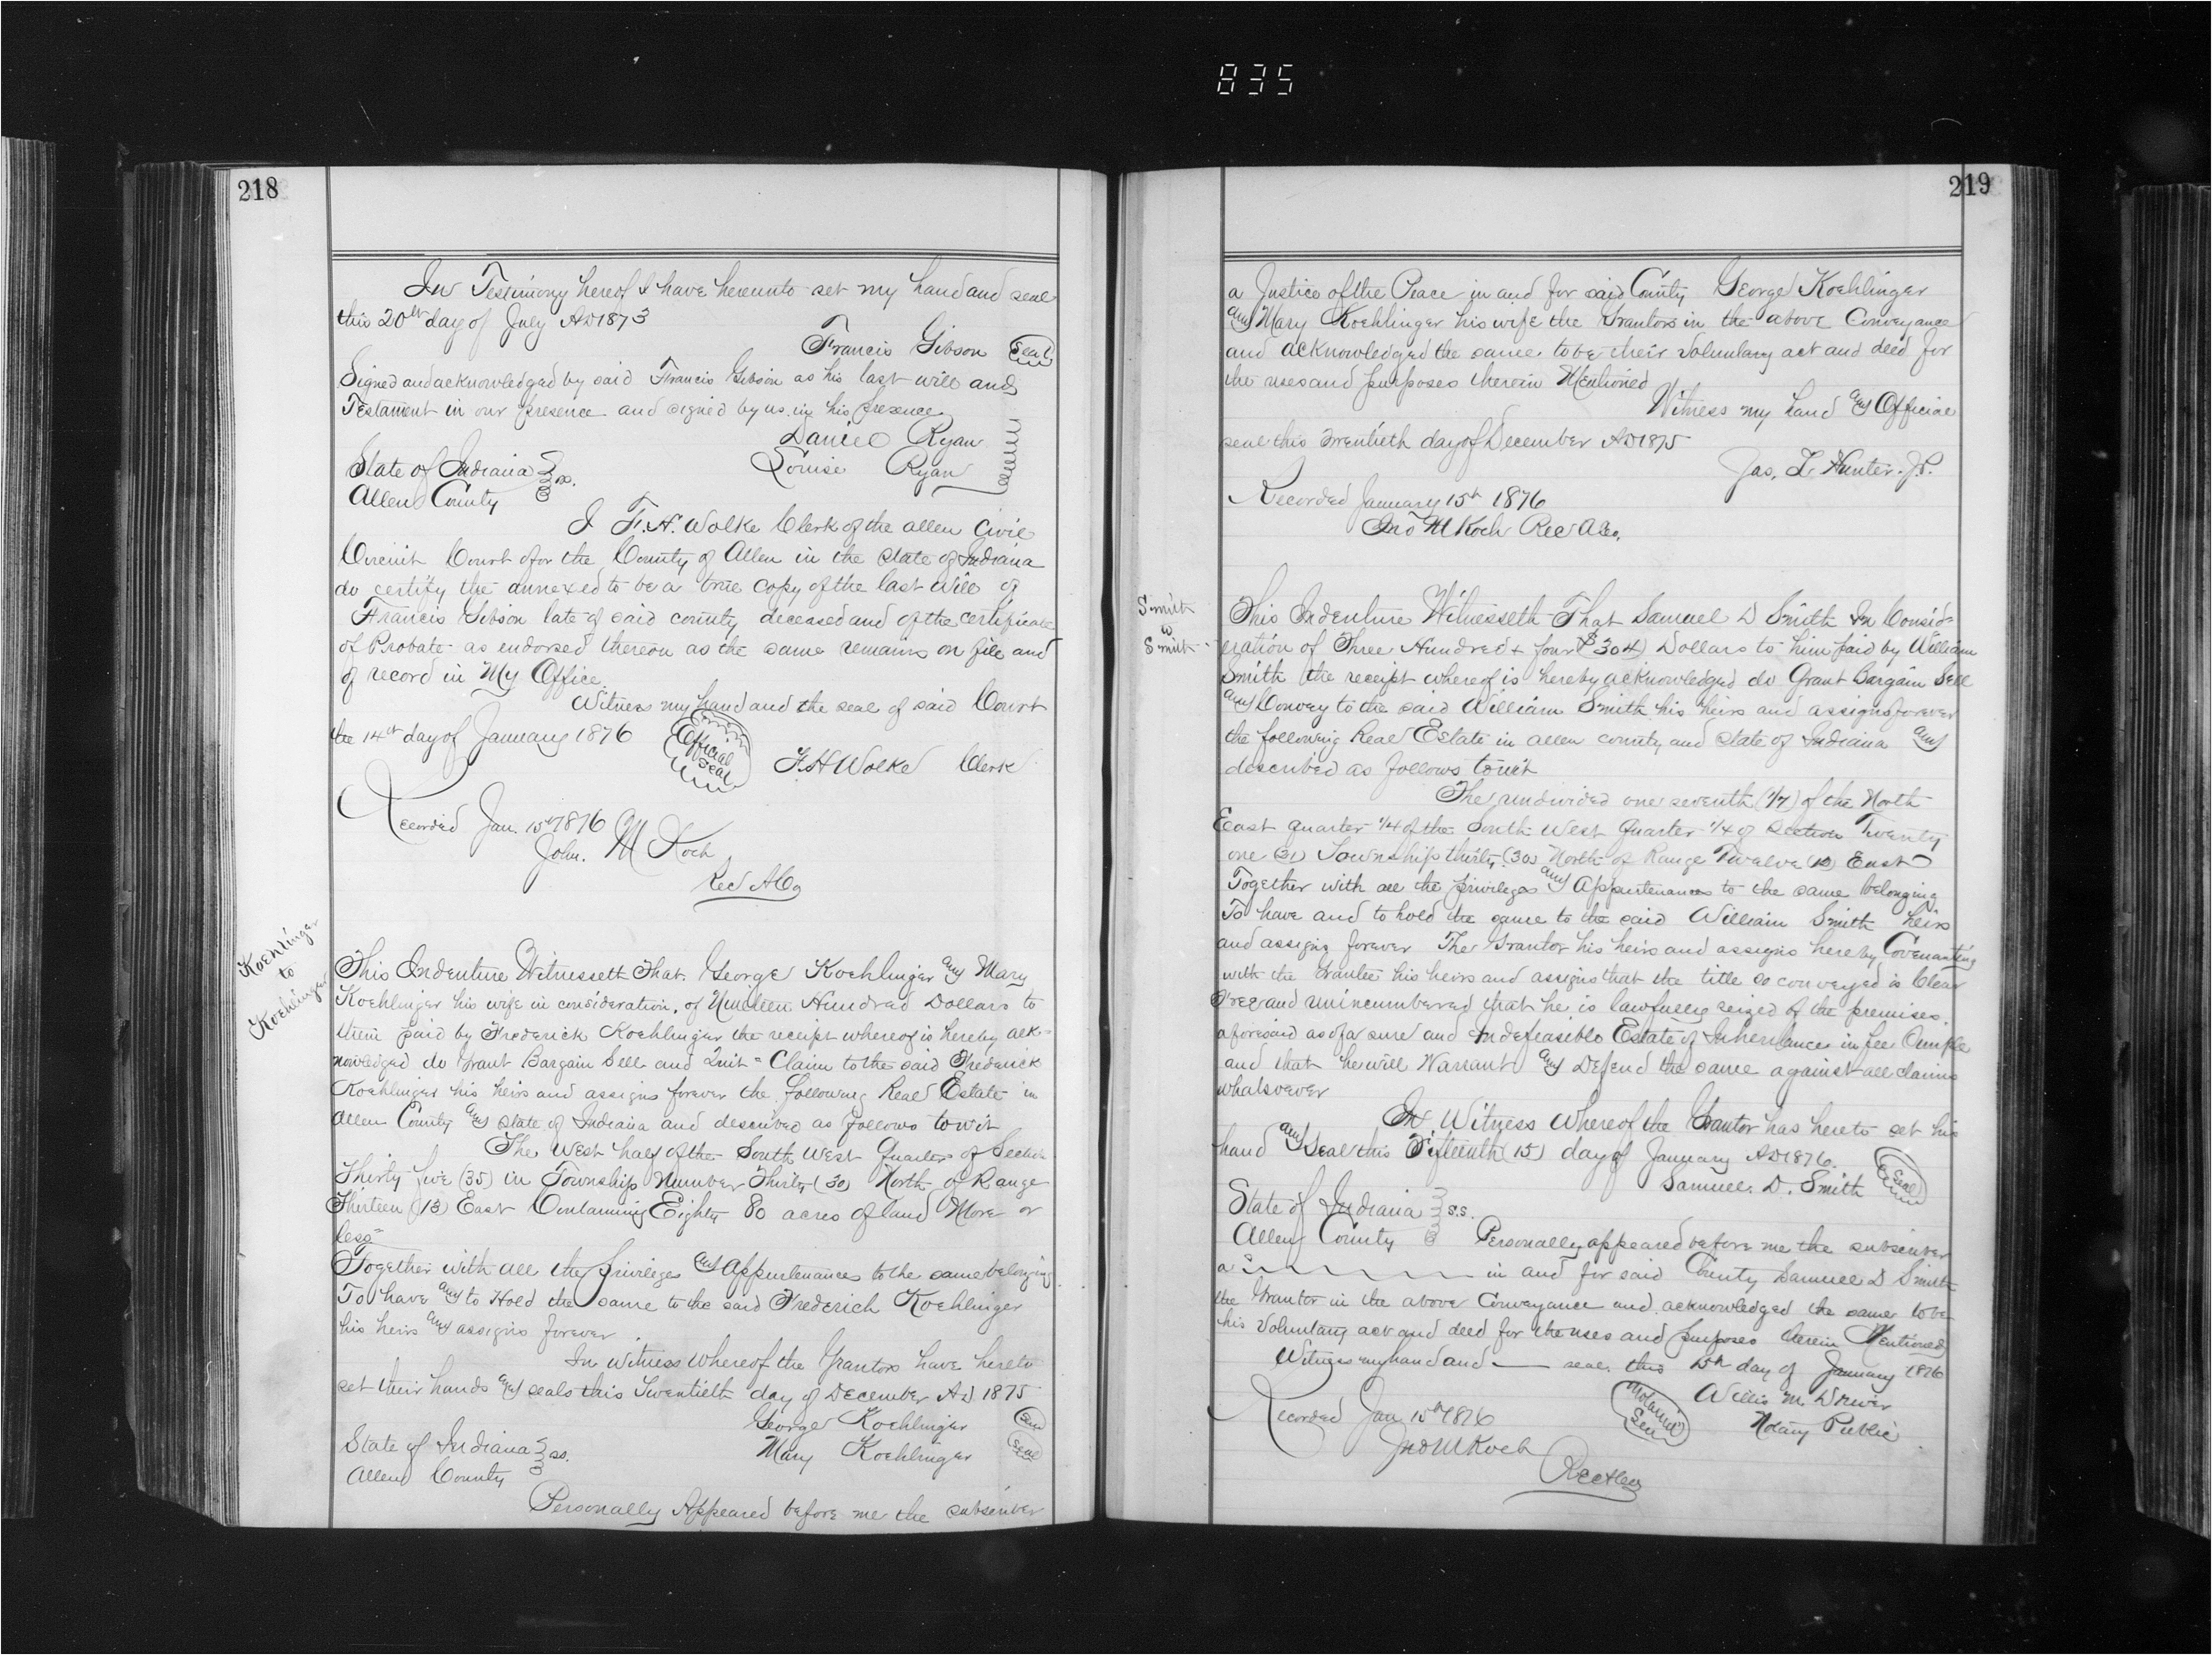 835
218
In Testimony hereof I have hereunto set my hand and seal
this 20th day of July AD 1873
Francis Gibson Seal
Signed and acknowledged by said Francis Gibson as his last will and
Testament in our presence and signed by us in his presence
Daniel Ryan
Louise Ryan
State of Indiana ss.
Allen County
I F. H. Wolke Clerk of the Allen Civil
Circuit Court for the County of Allen in the State of Indiana
do certify the annexed to be a true copy of the last will of
Francis Gibson late of said county deceased and of the certificate
of Probate as endorsed thereon as the same remains on file and
of record in My Office.
Witness my hand and the seal of said Court
the 14th day of January 1876
Official Seal
F. H Wolke Clerk
Recorded Jan. 15th 1876
John. M Koch
Rec A Co
Koehlinger
to
Koehlinger
This Indenture Witnesseth That George Koehlinger and Mary
Koehlinger his wife in consideration, of Nineteen Hundred Dollars to
them paid by Frederick Koehlinger the receipt whereof is hereby ack-
nowledged do Grant Bargain Sell and Quit = Claim to the said Frederick
Koehlinger his heirs and assigns forever the following Real Estate in
Allen County and State of Indiana and described as follows towit
The West half of the South West Quarter of Section
Thirty five (35) in Township Number Thirty (30) North of Range
Thirteen (13) East Containing Eighty 80 acres of land More or
less
Together with all the privileges and Appurtenances to the same belonging
To have and to Hold the same to the said Frederich Koehlinger
his heirs and assigns forever
In witness whereof the Grantors have hereto
set their hands and seals this Twentieth day of December AD 1875
George Koehlinger Seal
Mary Koehlinger Seal
State of Indiana ss.
Allen County
Personally Appeared before me the subscriber
219
a Justice of the Peace in and for said County George Koehlinger
and Mary Koehlinger his wife the Grantors in the above Conveyance
and acknowledged the same to be their voluntary act and deed for
the uses and purposes therein Mentioned
Witness my hand and Official
seal this Twentieth day of December AD 1875
Jas. L. Hunter. J.P.
Recorded January 15th 1876
Jno M Koch Rec A Co.
Smith
to
Smith
This Indenture Witnesseth That Samuel D Smith In Consid-
eration of Three Hundred + four ($304) Dollars to him paid by William
Smith the receipt whereof is hereby acknowledged do Grant Bargain Sell
and Convey to the said William Smith his heirs and assigns forever
the following Real Estate in Allen county and State of Indiana and
described as follows towit
The undivided one seventh (1/7) of the North
East quarter 1/4 of the South West Quarter 1/4 of Section Twenty
one (21) Township thirty (30) North of Range Twelve (12) East
Together with all the privileges and Appurtenances to the same belonging
To have and to hold the same to the said William Smith heirs
and assigns forever The Grantor his heirs and assigns hereby Covenanting
with the Grantee his heirs and assigns that the title so conveyed is Clear
Free and unincumbered that he is lawfully seized of the premises
aforesaid as of a sure and Indefeasible Estate of Inheritance in fee Simple
and that he will Warrant and Defend the same against all claims
whatsoever
In Witness Whereof the Grantor has hereto set his
hand and Seal this Fifteenth (15) day of January AD 1876.
Samuel. D. Smith Seal
State of Indiana S.S.
Allen County Personally appeared before me the subscriber
a in and for said County Samuel D Smith
the Grantor in the above Conveyance and acknowledged the same to be
his voluntary act and deed for the uses and purposes therein Mentioned
Witness my hand and seal this 15th day of January 1876
Notarial Seal
Willis M. Driver
Notary Public
Recorded Jan 15th 1876
Jno M Koch
Rec A Co